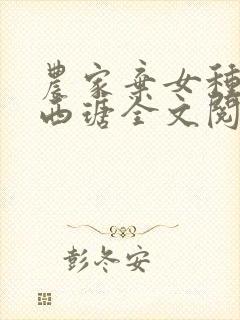 農家棄女種
西瑭全文閱
彭冬安